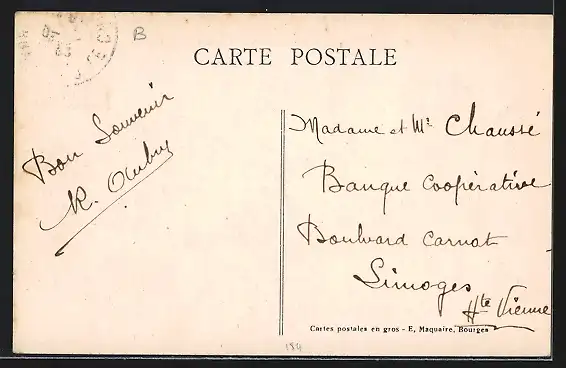 B
CARTE POSTALE
Bon Souvenir
R. Aubry
Madame et Mr Chaussé
Banque Coopérative
Boulevard Carnot
Limoges
Hte Vienne
Cartes postales en gros - E, Maquaire, Bourges
184